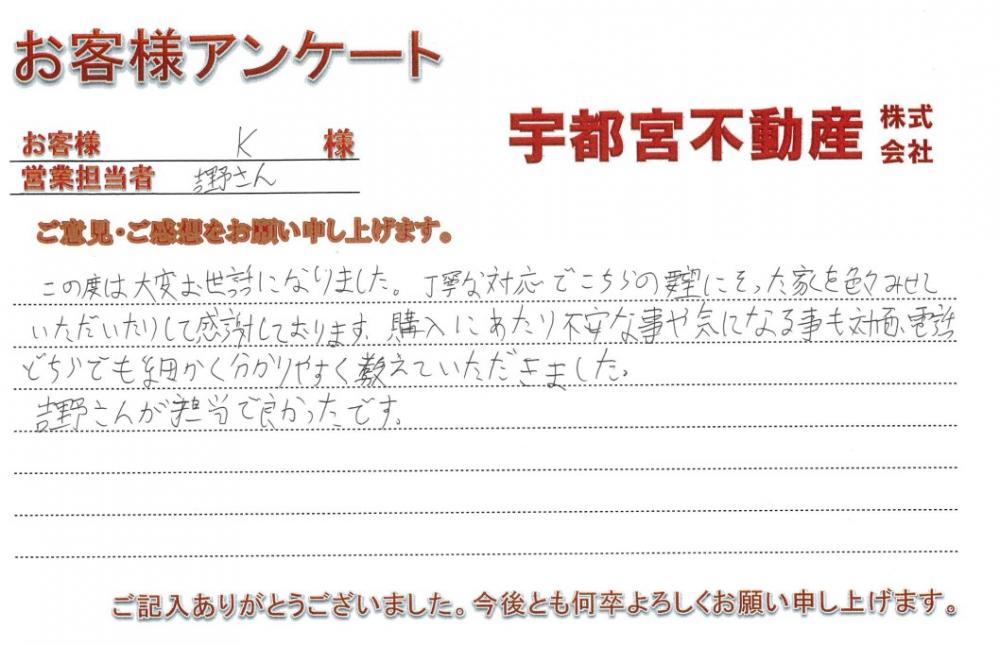 お客様アンケート
宇都宮不動産 株式会社
お客様 K 様
営業担当者 吉野さん
ご意見・ご感想をお願い申し上げます。
この度は大変お世話になりました。丁寧な対応でこちらの要望にそった家を色々みせて
いただいたりして感謝しております。購入にあたり不安な事や気になる事も対面、電話
どちらでも細かく分かりやすく教えていただきました。
吉野さんが担当で良かったです。
ご記入ありがとうございました。今後とも何卒よろしくお願い申し上げます。